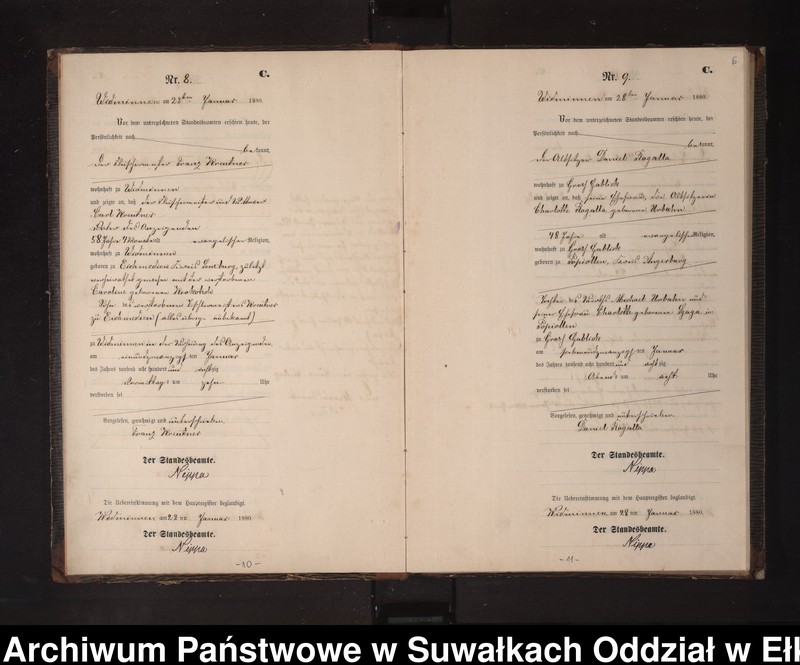 Nr. 8.
C.
Widminnen am 23ten Januar 1880.
Vor dem unterzeichneten Standesbeamten erschien heute, der
Persönlichkeit nach
bekannt,
der Tischlermeister Franz
wohnhaft zu Widminnen
und zeigte an, daß der Tischlermeister und Wittwer
Carl
Vater des Anzeigenden
58 Jahre alt, evangelischer Religion,
wohnhaft zu Widminnen
geboren zu Eichmedien Kreis Sensburg, zuletzt
verheirathet gewesen mit der verstorbenen
Caroline geborenen
Sohn des verstorbenen
zu Eichmedien (alles übrige unbekannt)
zu Widminnen in der Wohnung des Anzeigenden
am einundzwanzigsten Januar
des Jahres tausend acht hundert und achtzig
Vormittags um zehn Uhr
verstorben sei
Vorgelesen, genehmigt und unterschrieben
Franz
Der Standesbeamte.
Nippa
Die Uebereinstimmung mit dem Hauptregister beglaubigt
Widminnen am 22 ten Januar 1880.
Der Standesbeamte.
Nippa
-10-
6
Nr. 9.
C.
Widminnen am 28ten Januar 1880.
Vor dem unterzeichneten Standesbeamten erschien heute, der
Persönlichkeit nach
bekannt,
der Altsitzer Daniel Rogalla
wohnhaft zu Groß Gablick
und zeigte an, daß seine Ehefrau, die Altsitzerin
Charlotte Rogalla geborene
48 Jahre alt, evangelischer Religion,
wohnhaft zu Groß Gablick
geboren zu Possessern, Kreis Angerburg
Tochter des Michael und
seiner Ehefrau Charlotte geborenen in
zu Groß Gablick
am siebenundzwanzigsten Januar
des Jahres tausend acht hundert und achtzig
Abends um acht Uhr
verstorben sei
Vorgelesen, genehmigt und unterschrieben
Daniel Rogalla
Der Standesbeamte.
Nippa
Die Uebereinstimmung mit dem Hauptregister beglaubigt
Widminnen am 28 ten Januar 1880.
Der Standesbeamte.
Nippa
-11-
Archiwum Państwowe w Suwałkach Oddział w Eł